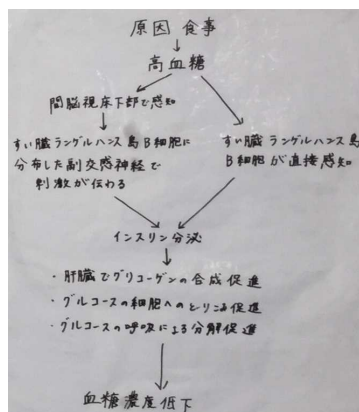 原因 食事
高血糖
間脳視床下部で感知
すい臓ランゲルハンス島B細胞に
分布した副交感神経で
刺激が伝わる
すい臓ランゲルハンス島
B細胞が直接感知
インスリン分泌
・肝臓でグリコーゲンの合成促進
・グルコースの細胞へのとりこみ促進
・グルコースの呼吸による分解促進
血糖濃度低下